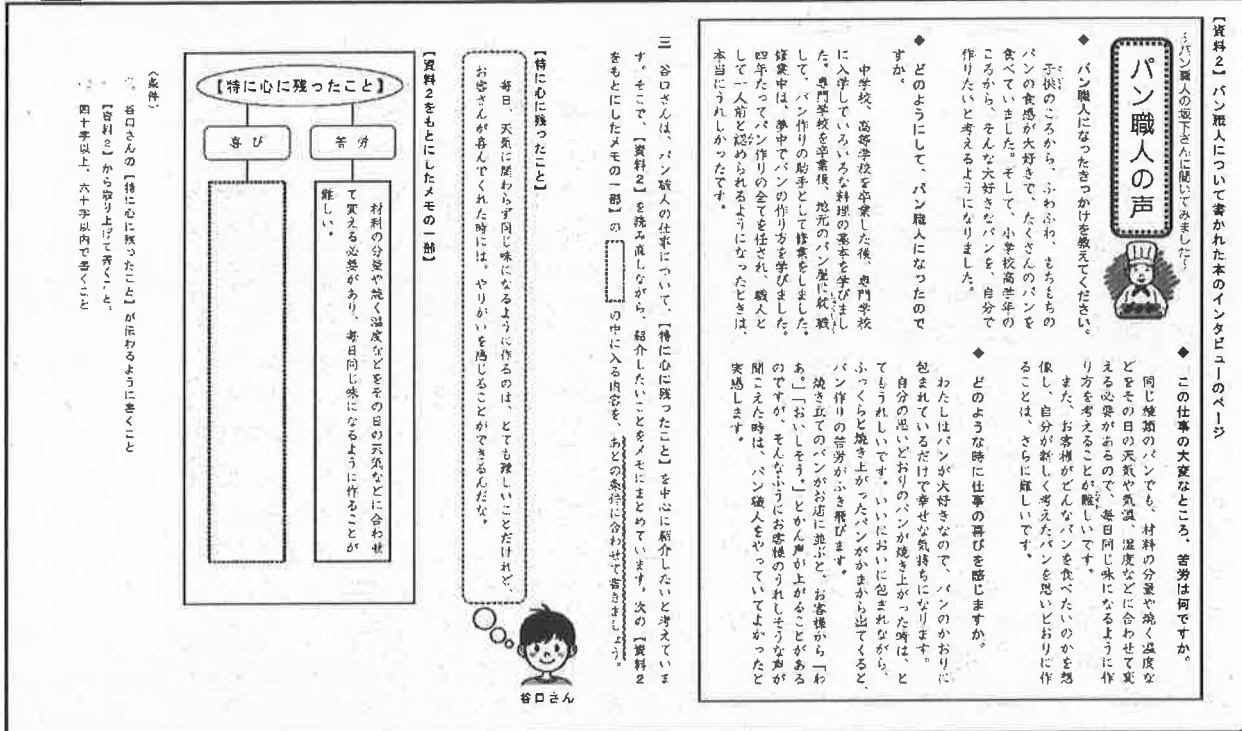 【資料2】パン職人について書かれた本のインタビューのページ
パン職人の声
～パン職人の坂下さんに聞いてみました～
◆ パン職人になったきっかけを教えてください。
子供のころから、ふわふわ、もちもちの
パンの食感が大好きで、たくさんのパンを
食べていました。そして、小学校高学年の
ころから、そんな大好きなパンを、自分で
作りたいと考えるようになりました。
◆ どのようにして、パン職人になったので
すか。
中学校、高等学校を卒業した後、専門学校
に入学していろいろな料理の基本を学びまし
た。専門学校を卒業後、地元のパン屋に就職
して、パン作りの助手として修業をしました。
修業中は、夢中でパンの作り方を学びました。
四年たってパン作りの全てを任され、職人と
して一人前と認められるようになったときは、
本当にうれしかったです。
◆ この仕事の大変なところ、苦労は何ですか。
同じ種類のパンでも、材料の分量や焼く温度な
どをその日の天気や気温、湿度などに合わせて変
える必要があるので、毎日同じ味になるように作
り方を考えることが難しいです。
また、お客様がどんなパンを食べたいのかを想
像し、自分が新しく考えたパンを思いどおりに作
ることは、さらに難しいです。
◆ どのような時に仕事の喜びを感じますか。
わたしはパンが大好きなので、パンのかおりに
包まれているだけで幸せな気持ちになります。
自分の思いどおりのパンが焼き上がった時は、と
てもうれしいです。いいにおいに包まれながら、
ふっくらと焼き上がったパンがかまから出てくると、
パン作りの苦労がふき飛びます。
焼き立てのパンがお店に並ぶと、お客様から「わ
あ。」「おいしそう。」とかん声が上がることがある
のですが、そんなふうにお客様のうれしそうな声が
聞こえた時は、パン職人をやっていてよかったと
実感します。
三 谷口さんは、パン職人の仕事について、【特に心に残ったこと】を中心に紹介したいと考えていま
す。そこで、【資料2】を読み直しながら、紹介したいことをメモにまとめています。次の【資料2
をもとにしたメモの一部】の の中に入る内容を、あとの条件に合わせて書きましょう。
【特に心に残ったこと】
毎日、天気に関わらず同じ味になるように作るのは、とても難しいことだけれど、
お客さんが喜んでくれた時には、やりがいを感じることができるんだな。
谷口さん
【資料2をもとにしたメモの一部】
【特に心に残ったこと】
苦労
材料の分量や焼く温度などをその日の天気などに合わせ
て変える必要があり、毎日同じ味になるように作ることが
難しい。
喜び
〈条件〉
・ 谷口さんの【特に心に残ったこと】が伝わるように書くこと
・ 【資料2】から取り上げて書くこと。
・ 四十字以上、六十字以内で書くこと